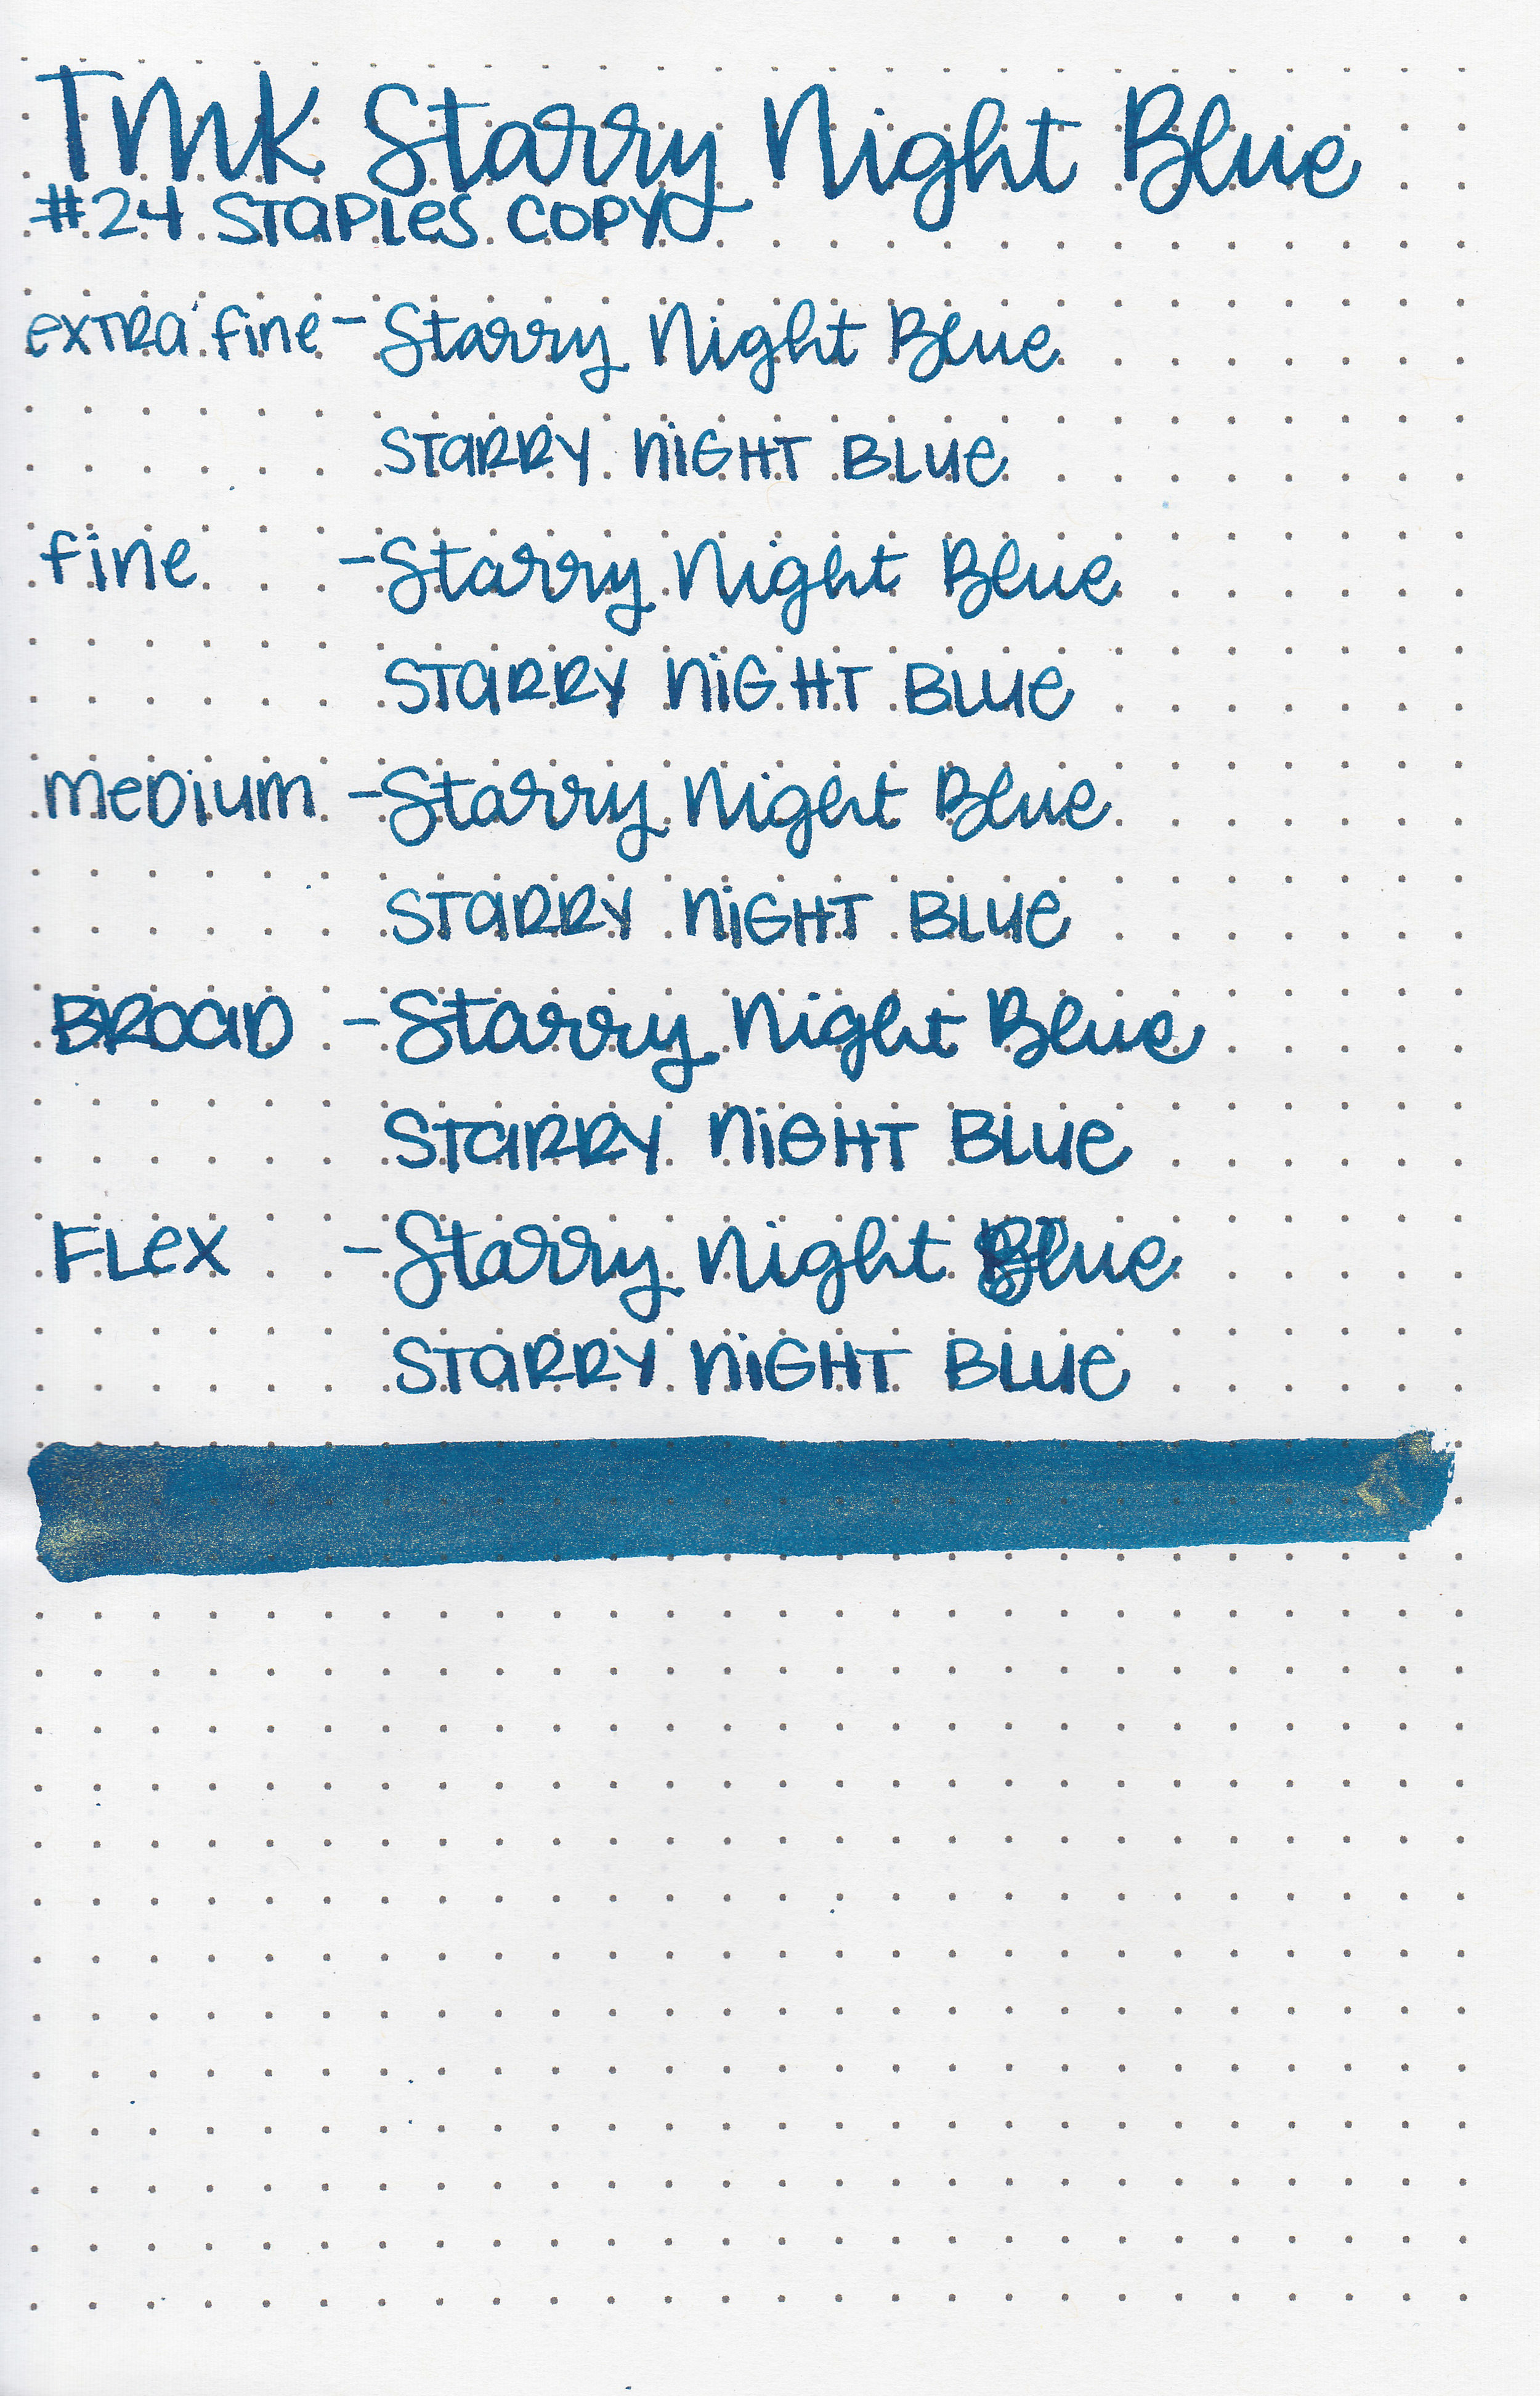 TMK Starry Night Blue
#24 STAPLES COPY
extra fine - Starry Night Blue
STARRY NIGHT BLUE
fine - Starry Night Blue
STARRY NIGHT BLUE
MEDIUM - Starry Night Blue
STARRY NIGHT BLUE
BROAD - Starry Night Blue
STARRY NIGHT BLUE
FLEX - Starry Night Blue
STARRY NIGHT BLUE